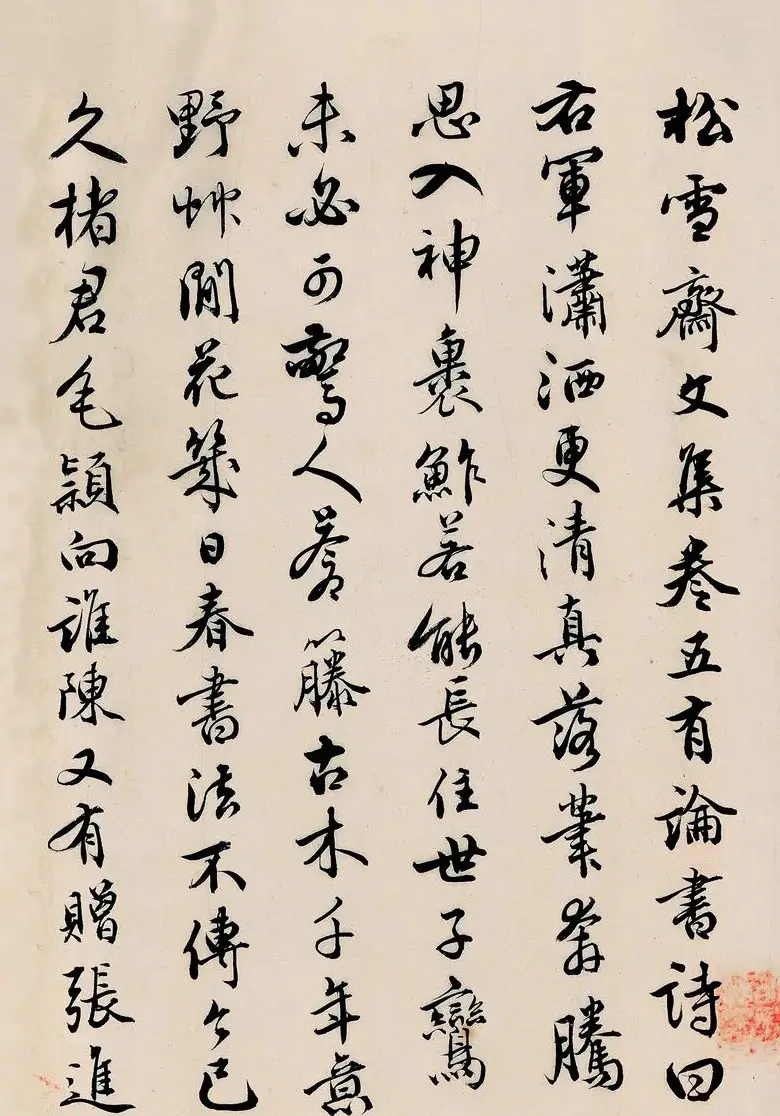 松雪齋文集卷五有論書詩曰
右軍瀟洒更清真落筆奔騰
思入神裹鮓若能長住世子鸞
未必可驚人蒼籐古木千年意
野艸閒花幾日春書法不傳今已
久楮君毛穎向誰陳又有贈張進